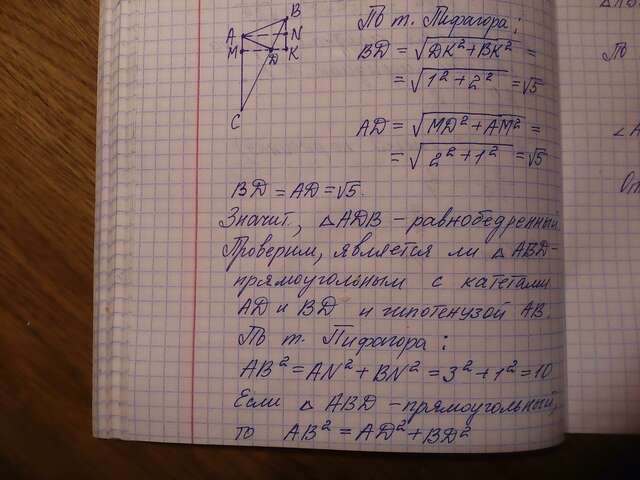 B
A
N
M
D
K
C
По т. Пифагора:
BD = √DK² + BK² =
= √1² + 2² = √5
AD = √MD² + AM² =
= √2² + 1² = √5
BD = AD = √5.
Значит, △ADB - равнобедренный.
Проверим, является ли △ABD -
прямоугольным с катетами
AD и BD и гипотенузой AB.
По т. Пифагора:
AB² = AN² + BN² = 3² + 1² = 10
Если △ABD - прямоугольный,
то AB² = AD² + BD²
По
∠A